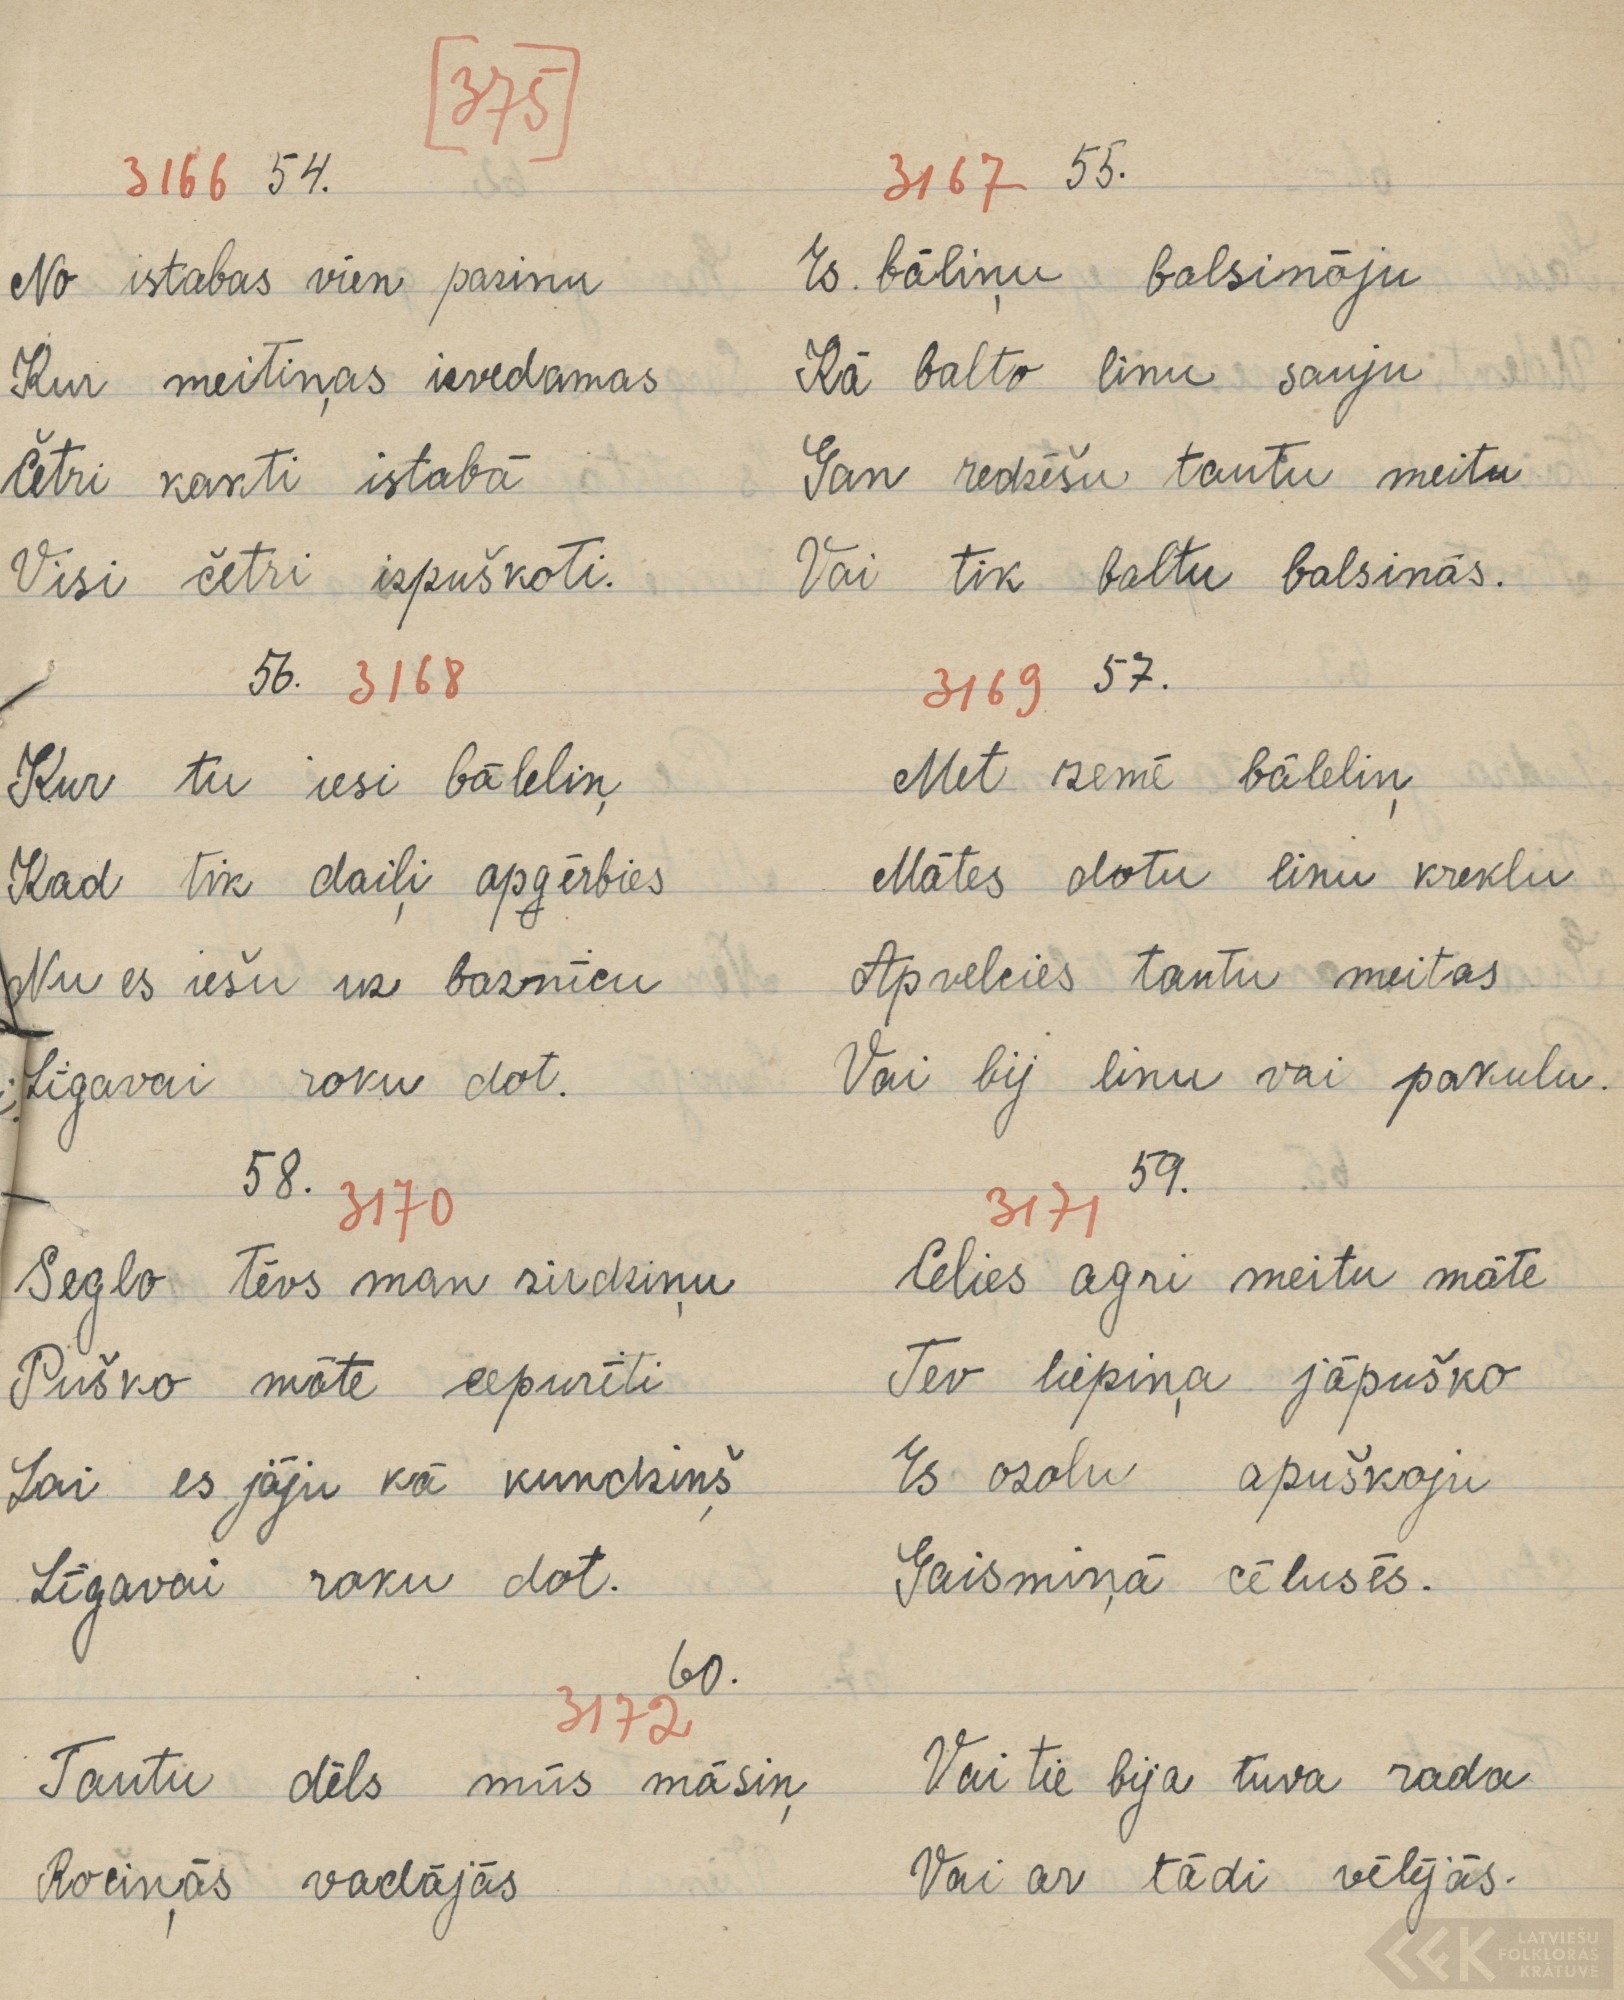 [375]
3166 54.
No istabas vien pazinu
Kur meitiņas izvedamas
Četri kakti istabā
Visi četri izpuškoti.
3167 55.
Es bāliņu balsināju
Kā balto linu sauju
Gan redzēšu tautu meitu
Vai tik baltu balsinās.
56. 3168
Kur tu iesi bāleliņ
Kad tik daiļi apģērbies
Nu es iešu uz baznīcu
Līgavai roku dot.
3169 57.
Met zemē bāleliņ
Mātes dotu linu kreklu
Apvelcies tautu meitas
Vai bij linu vai pakulu.
58. 3170
Seglo tēvs man zirdziņu
Puško māte cepurīti
Lai es jāju kā kundziņš
Līgavai roku dot.
3171 59.
Celies agri meitu māte
Tev liepiņa jāpuško
Es ozolu apuškoju
Gaismiņā cēlusēs.
60.
3172
Tautu dēls mūs māsiņ
Rociņās vadājās
Vai tie bija tuva rada
Vai ar tādi vēlējās.
LATVIEŠU
FOLKLORAS
KRĀTUVE